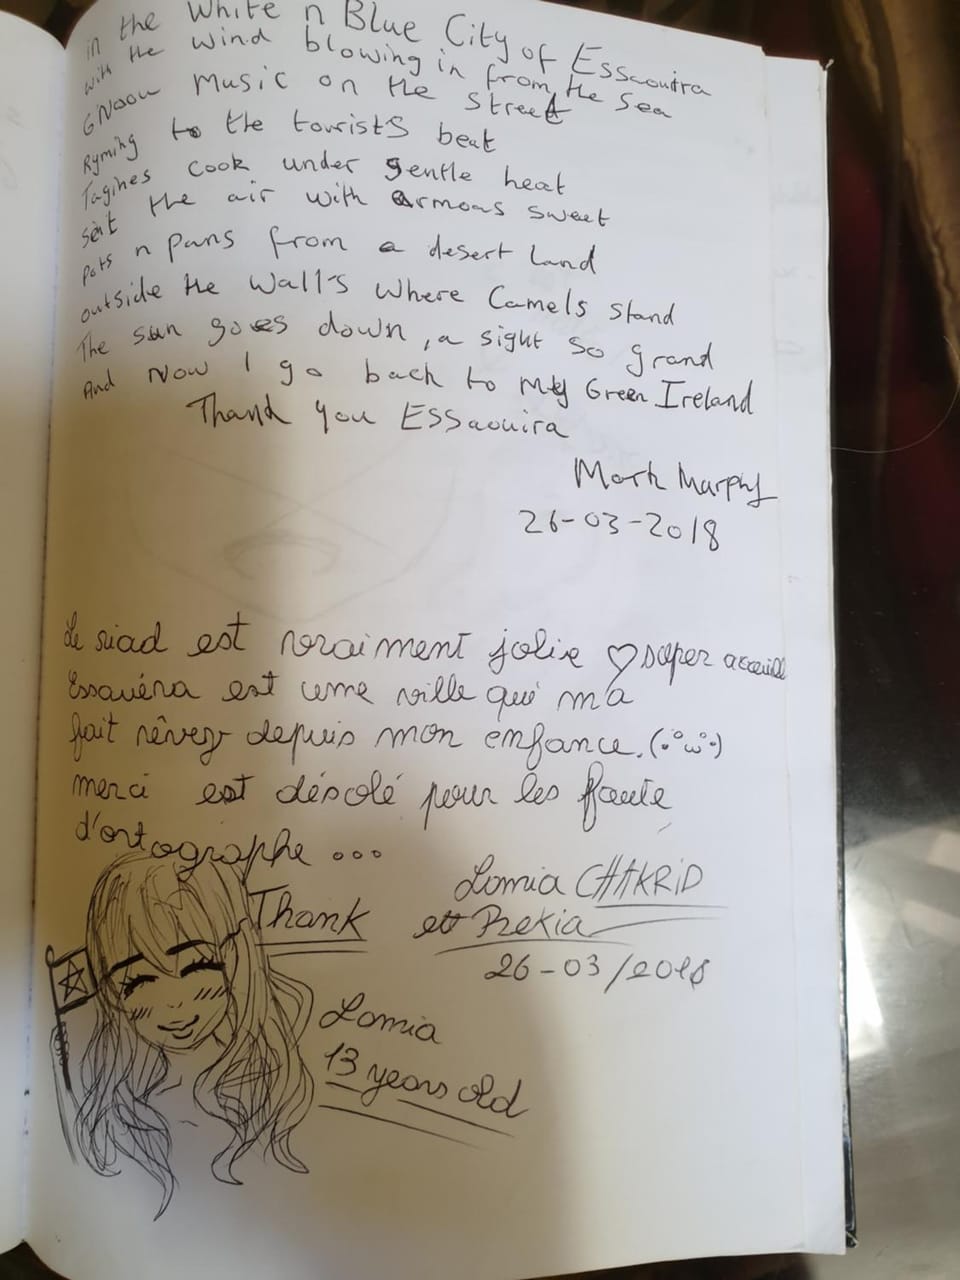 in the White n Blue City of Essaouira
with the wind blowing in from the sea
G'Naou Music on the street
Ryming to the tourists beat
Tagines cook under gentle heat
the air with armoas sweet
pots n pans from a desert land
outside the Wall's where Camels stand
The sun goes down, a sight so grand
And Now I go back to My Green Ireland
Thank you ESSaouira
Mark Murphy
26-03-2018
Le riad est vraiment jolie ♡ super acceuill
Essauéra est une ville qui m'a
fait rêver depuis mon enfance. (·°ω°·)
merci est désolé pour les faute
d'ortographe ...
Lamia CHAKRiD
Thank
et Rekia
26-03/2018
Lamia
13 years old